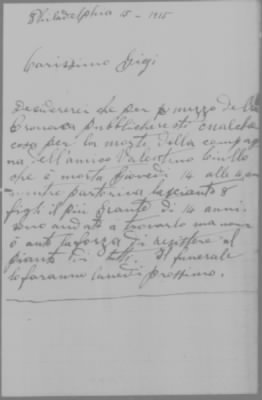 Philadelphia 15 - 1915
Carissimo Gigi
Desidererei che per mezzo della
Cronaca pubblichereste qualche
cosa per la morte della compag
na dell'amico Valestino
che è morta giovedì 14 alle 4 am
mentre partoriva lascianto 8
figli il più grante di 14 anni.
sono andato a trovarlo ma non
ò auto la forza di resistere al
pianto di tutti. Il funerale
lo faranno lunedì prossimo.